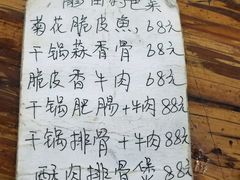 菊花脆皮魚，68元
干锅蒜香骨 68元
脆皮香牛肉 68元
干锅肥腸+牛肉88元
干锅排骨+牛肉88元
酥肉排骨煲 88